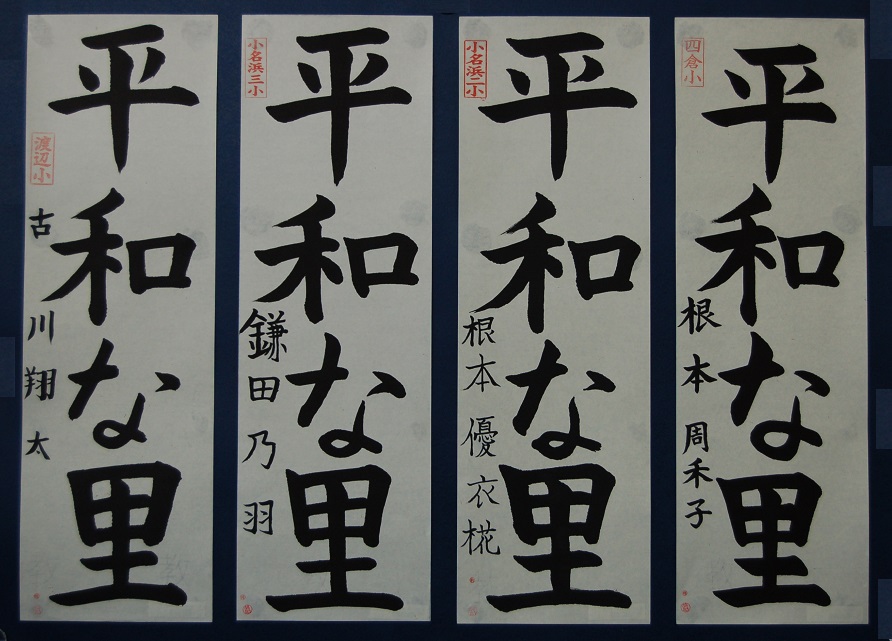 四倉小
平和な里
根本周禾子
小名浜二小
平和な里
根本優衣椛
小名浜三小
平和な里
鎌田乃羽
渡辺小
平和な里
古川翔太